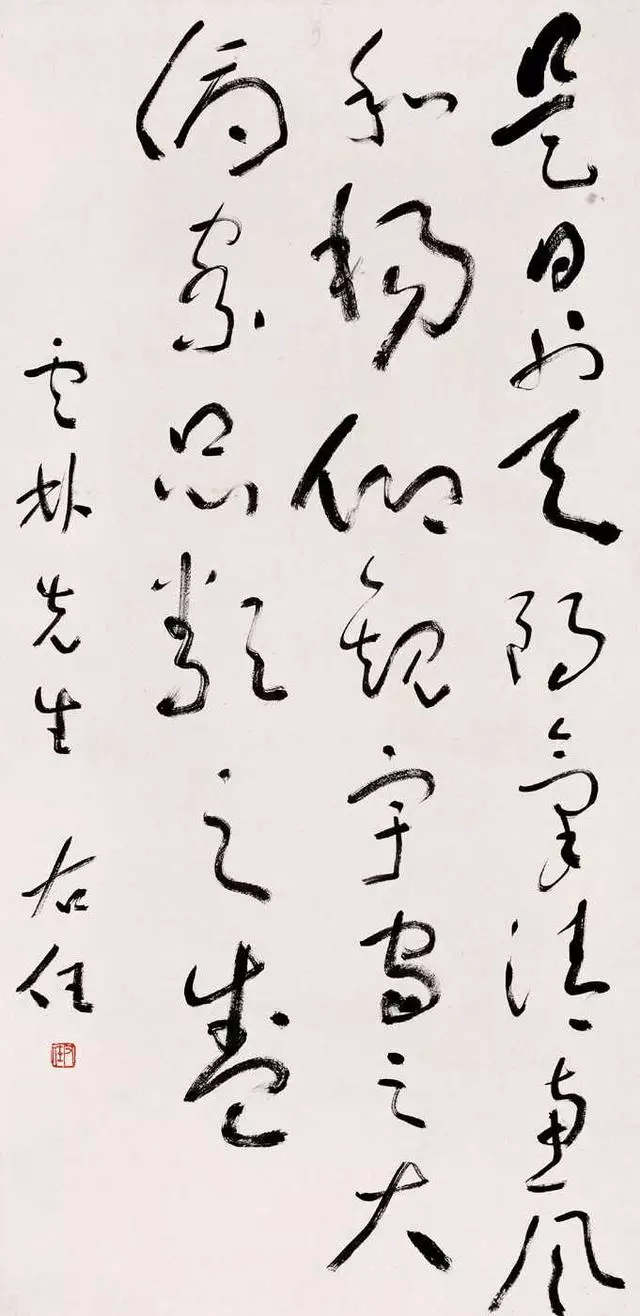 是日也天朗氣清惠風
和暢仰觀宇宙之大
俯察品類之盛
雲林先生 右任
右任